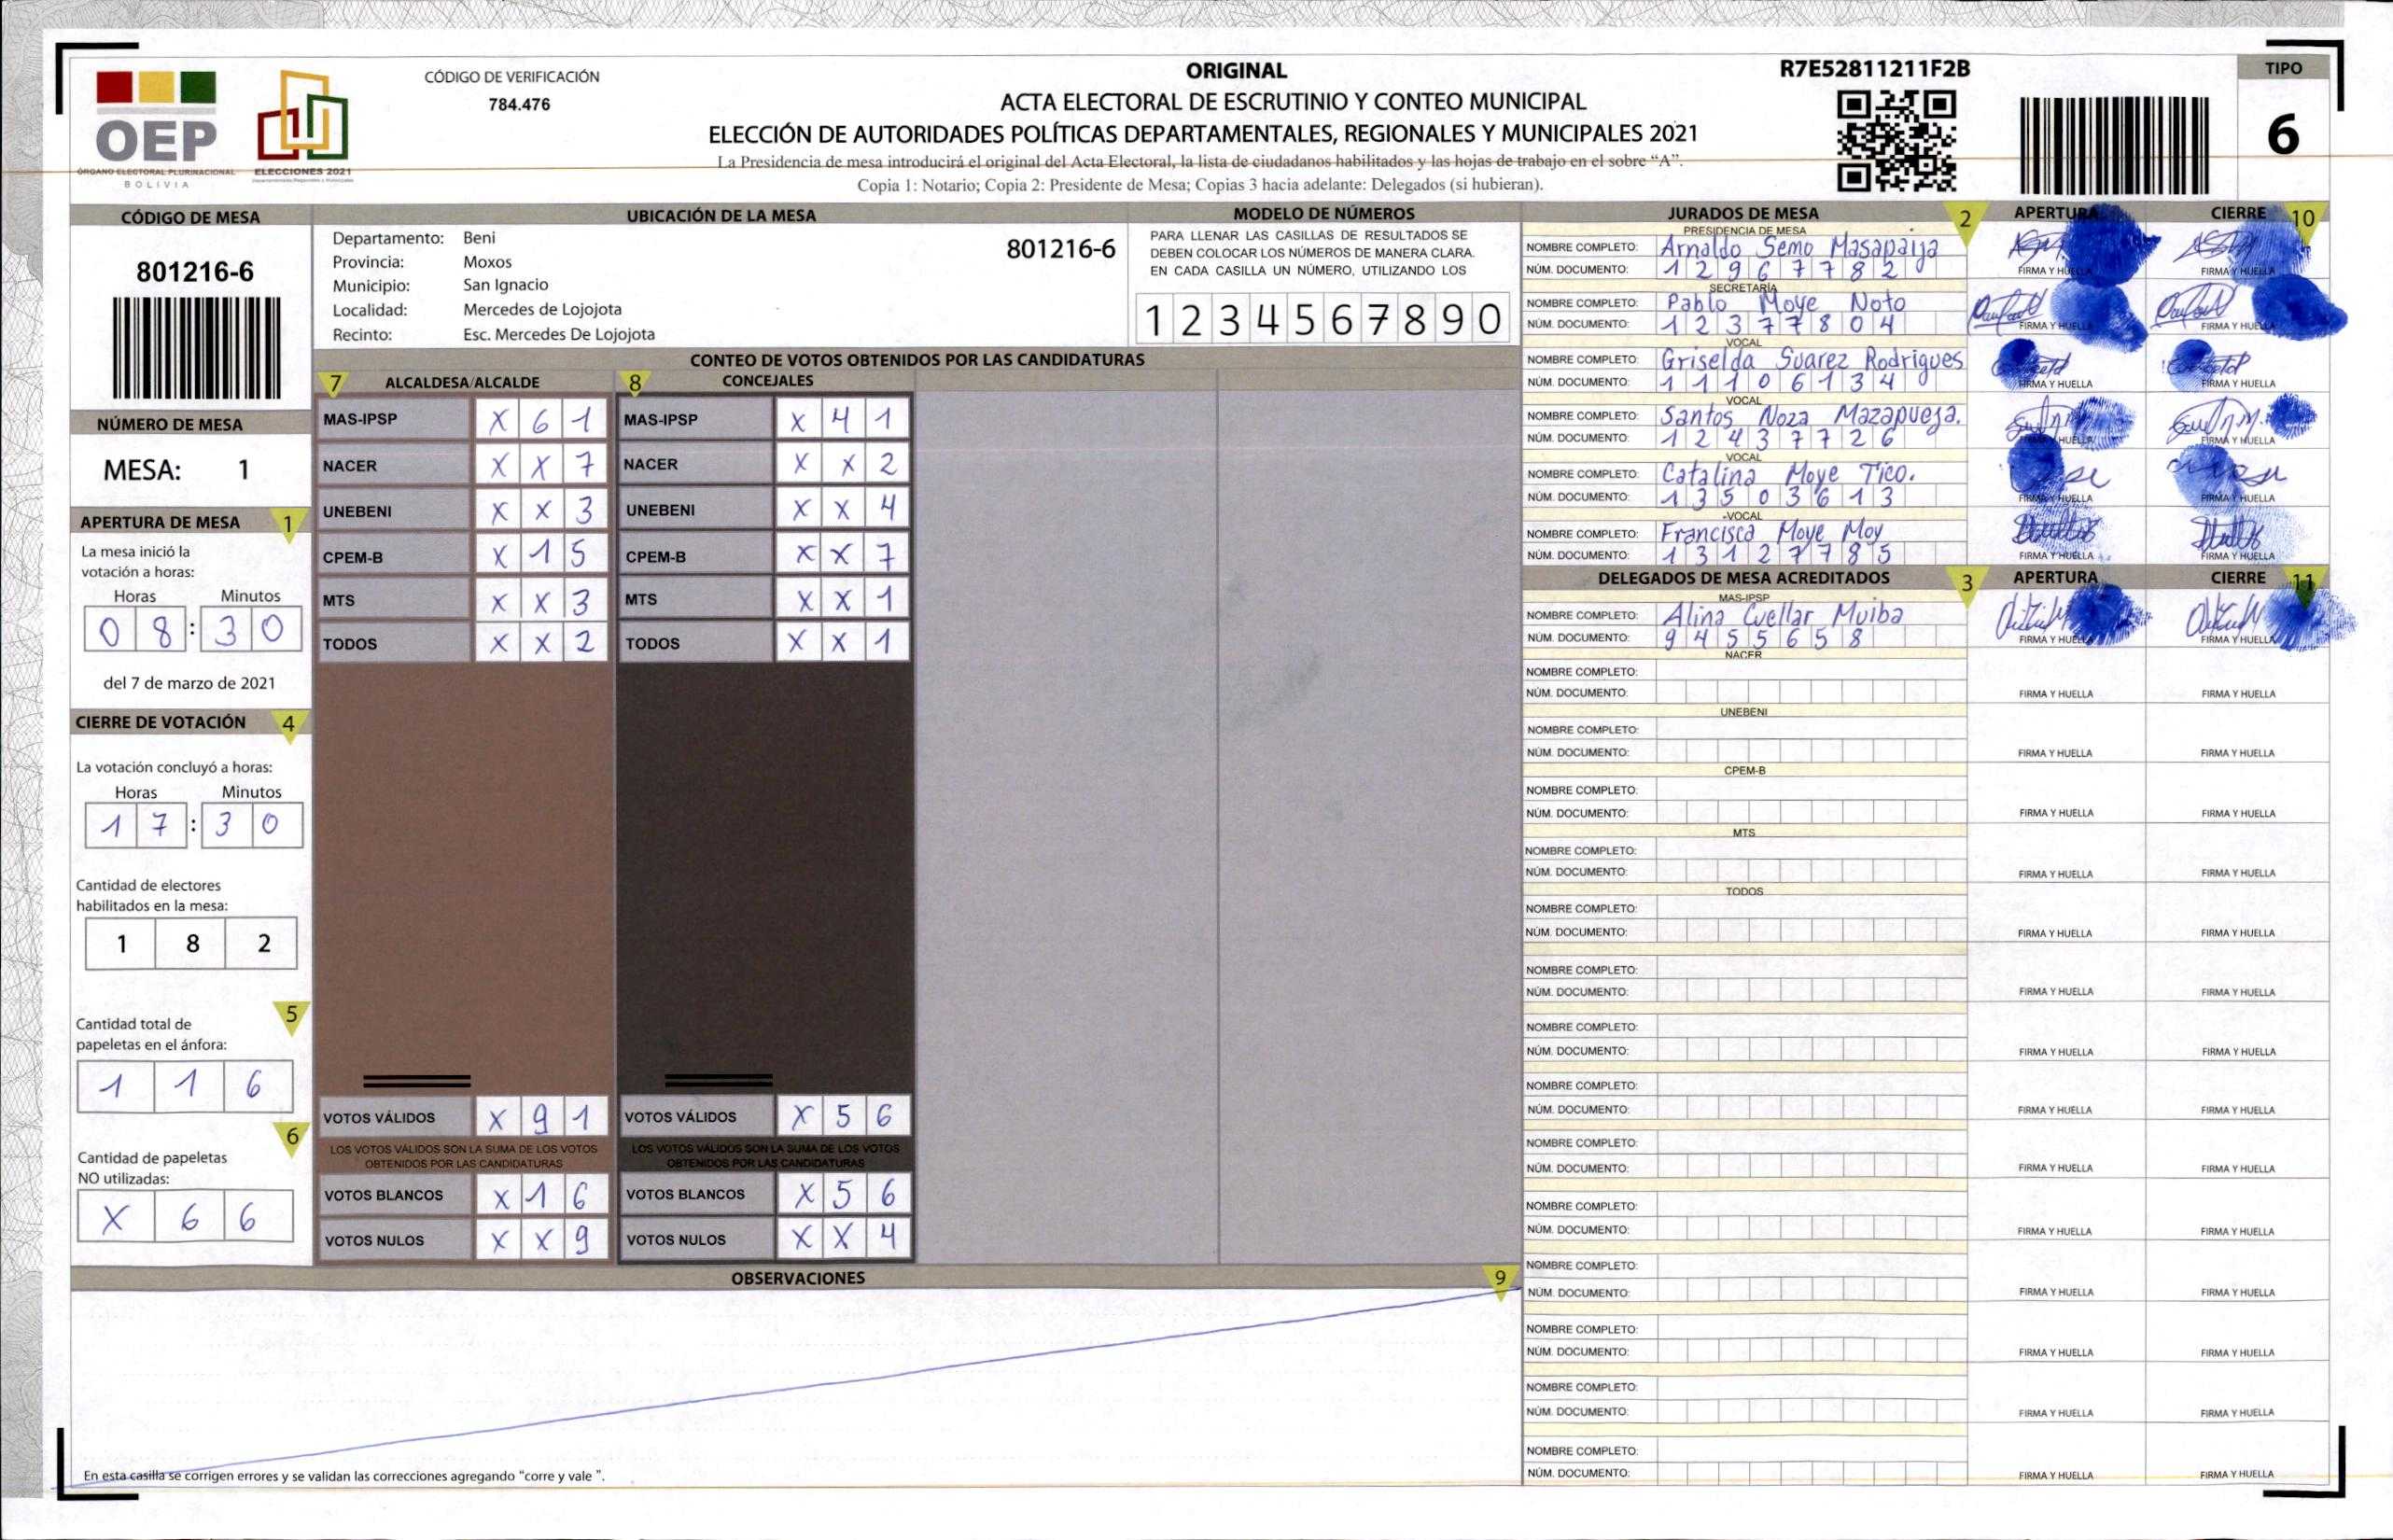 OEP
ÓRGANO ELECTORAL PLURINACIONAL
BOLIVIA
ELECCIONES 2021
CÓDIGO DE VERIFICACIÓN
784.476
ORIGINAL
ACTA ELECTORAL DE ESCRUTINIO Y CONTEO MUNICIPAL
ELECCIÓN DE AUTORIDADES POLÍTICAS DEPARTAMENTALES, REGIONALES Y MUNICIPALES 2021
La Presidencia de mesa introducirá el original del Acta Electoral, la lista de ciudadanos habilitados y las hojas de trabajo en el sobre “A”.
Copia 1: Notario; Copia 2: Presidente de Mesa; Copias 3 hacia adelante: Delegados (si hubieran).
R7E52811211F2B
TIPO
6
CÓDIGO DE MESA
801216-6
NÚMERO DE MESA
MESA: 1
APERTURA DE MESA 1
La mesa inició la
votación a horas:
Horas Minutos
0 8 : 3 0
del 7 de marzo de 2021
CIERRE DE VOTACIÓN 4
La votación concluyó a horas:
Horas Minutos
1 7 : 3 0
Cantidad de electores
habilitados en la mesa:
1 8 2
5
Cantidad total de
papeletas en el ánfora:
1 1 6
6
Cantidad de papeletas
NO utilizadas:
X 6 6
UBICACIÓN DE LA MESA
Departamento: Beni
Provincia: Moxos
Municipio: San Ignacio
Localidad: Mercedes de Lojojota
Recinto: Esc. Mercedes De Lojojota
801216-6
MODELO DE NÚMEROS
PARA LLENAR LAS CASILLAS DE RESULTADOS SE
DEBEN COLOCAR LOS NÚMEROS DE MANERA CLARA.
EN CADA CASILLA UN NÚMERO, UTILIZANDO LOS
1 2 3 4 5 6 7 8 9 0
CONTEO DE VOTOS OBTENIDOS POR LAS CANDIDATURAS
7 ALCALDESA/ALCALDE
MAS-IPSP X 6 1
NACER X X 7
UNEBENI X X 3
CPEM-B X 1 5
MTS X X 3
TODOS X X 2
VOTOS VÁLIDOS X 9 1
LOS VOTOS VÁLIDOS SON LA SUMA DE LOS VOTOS
OBTENIDOS POR LAS CANDIDATURAS
VOTOS BLANCOS X 1 6
VOTOS NULOS X X 9
8 CONCEJALES
MAS-IPSP X 4 1
NACER X X 2
UNEBENI X X 4
CPEM-B X X 7
MTS X X 1
TODOS X X 1
VOTOS VÁLIDOS X 5 6
LOS VOTOS VÁLIDOS SON LA SUMA DE LOS VOTOS
OBTENIDOS POR LAS CANDIDATURAS
VOTOS BLANCOS X 5 6
VOTOS NULOS X X 4
OBSERVACIONES 9
En esta casilla se corrigen errores y se validan las correcciones agregando “corre y vale ”.
JURADOS DE MESA 2 APERTURA CIERRE 10
PRESIDENCIA DE MESA
NOMBRE COMPLETO: Arnaldo Semo Masapaija
NÚM. DOCUMENTO: 1 2 9 6 7 7 8 2 FIRMA Y HUELLA FIRMA Y HUELLA
SECRETARÍA
NOMBRE COMPLETO: Pablo Moye Noto
NÚM. DOCUMENTO: 1 2 3 7 7 8 0 4 FIRMA Y HUELLA FIRMA Y HUELLA
VOCAL
NOMBRE COMPLETO: Griselda Suarez Rodrigues
NÚM. DOCUMENTO: 1 1 1 0 6 1 3 4 FIRMA Y HUELLA FIRMA Y HUELLA
VOCAL
NOMBRE COMPLETO: Santos Noza Mazapueja.
NÚM. DOCUMENTO: 1 2 4 3 7 7 2 6 FIRMA Y HUELLA FIRMA Y HUELLA
VOCAL
NOMBRE COMPLETO: Catalina Moye Tico.
NÚM. DOCUMENTO: 1 3 5 0 3 6 1 3 FIRMA Y HUELLA FIRMA Y HUELLA
VOCAL
NOMBRE COMPLETO: Francisca Moye Moy
NÚM. DOCUMENTO: 1 3 1 2 7 7 8 5 FIRMA Y HUELLA FIRMA Y HUELLA
DELEGADOS DE MESA ACREDITADOS 3 APERTURA CIERRE 11
MAS-IPSP
NOMBRE COMPLETO: Alina Cuellar Muiba
NÚM. DOCUMENTO: 9 4 5 5 6 5 8 FIRMA Y HUELLA FIRMA Y HUELLA
NACER
NOMBRE COMPLETO:
NÚM. DOCUMENTO: FIRMA Y HUELLA FIRMA Y HUELLA
UNEBENI
NOMBRE COMPLETO:
NÚM. DOCUMENTO: FIRMA Y HUELLA FIRMA Y HUELLA
CPEM-B
NOMBRE COMPLETO:
NÚM. DOCUMENTO: FIRMA Y HUELLA FIRMA Y HUELLA
MTS
NOMBRE COMPLETO:
NÚM. DOCUMENTO: FIRMA Y HUELLA FIRMA Y HUELLA
TODOS
NOMBRE COMPLETO:
NÚM. DOCUMENTO: FIRMA Y HUELLA FIRMA Y HUELLA
NOMBRE COMPLETO:
NÚM. DOCUMENTO: FIRMA Y HUELLA FIRMA Y HUELLA
NOMBRE COMPLETO:
NÚM. DOCUMENTO: FIRMA Y HUELLA FIRMA Y HUELLA
NOMBRE COMPLETO:
NÚM. DOCUMENTO: FIRMA Y HUELLA FIRMA Y HUELLA
NOMBRE COMPLETO:
NÚM. DOCUMENTO: FIRMA Y HUELLA FIRMA Y HUELLA
NOMBRE COMPLETO:
NÚM. DOCUMENTO: FIRMA Y HUELLA FIRMA Y HUELLA
NOMBRE COMPLETO:
NÚM. DOCUMENTO: FIRMA Y HUELLA FIRMA Y HUELLA
NOMBRE COMPLETO:
NÚM. DOCUMENTO: FIRMA Y HUELLA FIRMA Y HUELLA
NOMBRE COMPLETO:
NÚM. DOCUMENTO: FIRMA Y HUELLA FIRMA Y HUELLA
NOMBRE COMPLETO:
NÚM. DOCUMENTO: FIRMA Y HUELLA FIRMA Y HUELLA